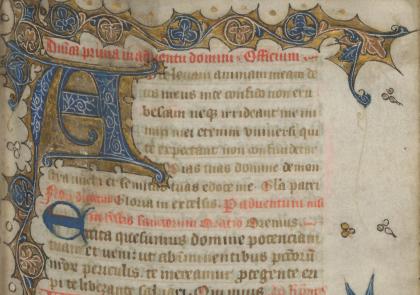 Dnica prima in adventu domini Officium
A te levavi animam meam de
us meus in te confido non eru
bescam neqz irrideant me ini
mici mei etenim universi qui
te expectant non confundetur
Vias tuas domine demon
stra michi et semitas tuas edoce me Gla patri
Non dicatur Gloria in excelsis P adventum nisi
in festis sanctorum Oratio Oremus
Excita quesumus domine potentiam
tuam et veni ut ab iminentibus pctorum
nror periculis te mereamur ptegente eri
pi te liberante salvari Qui vivis